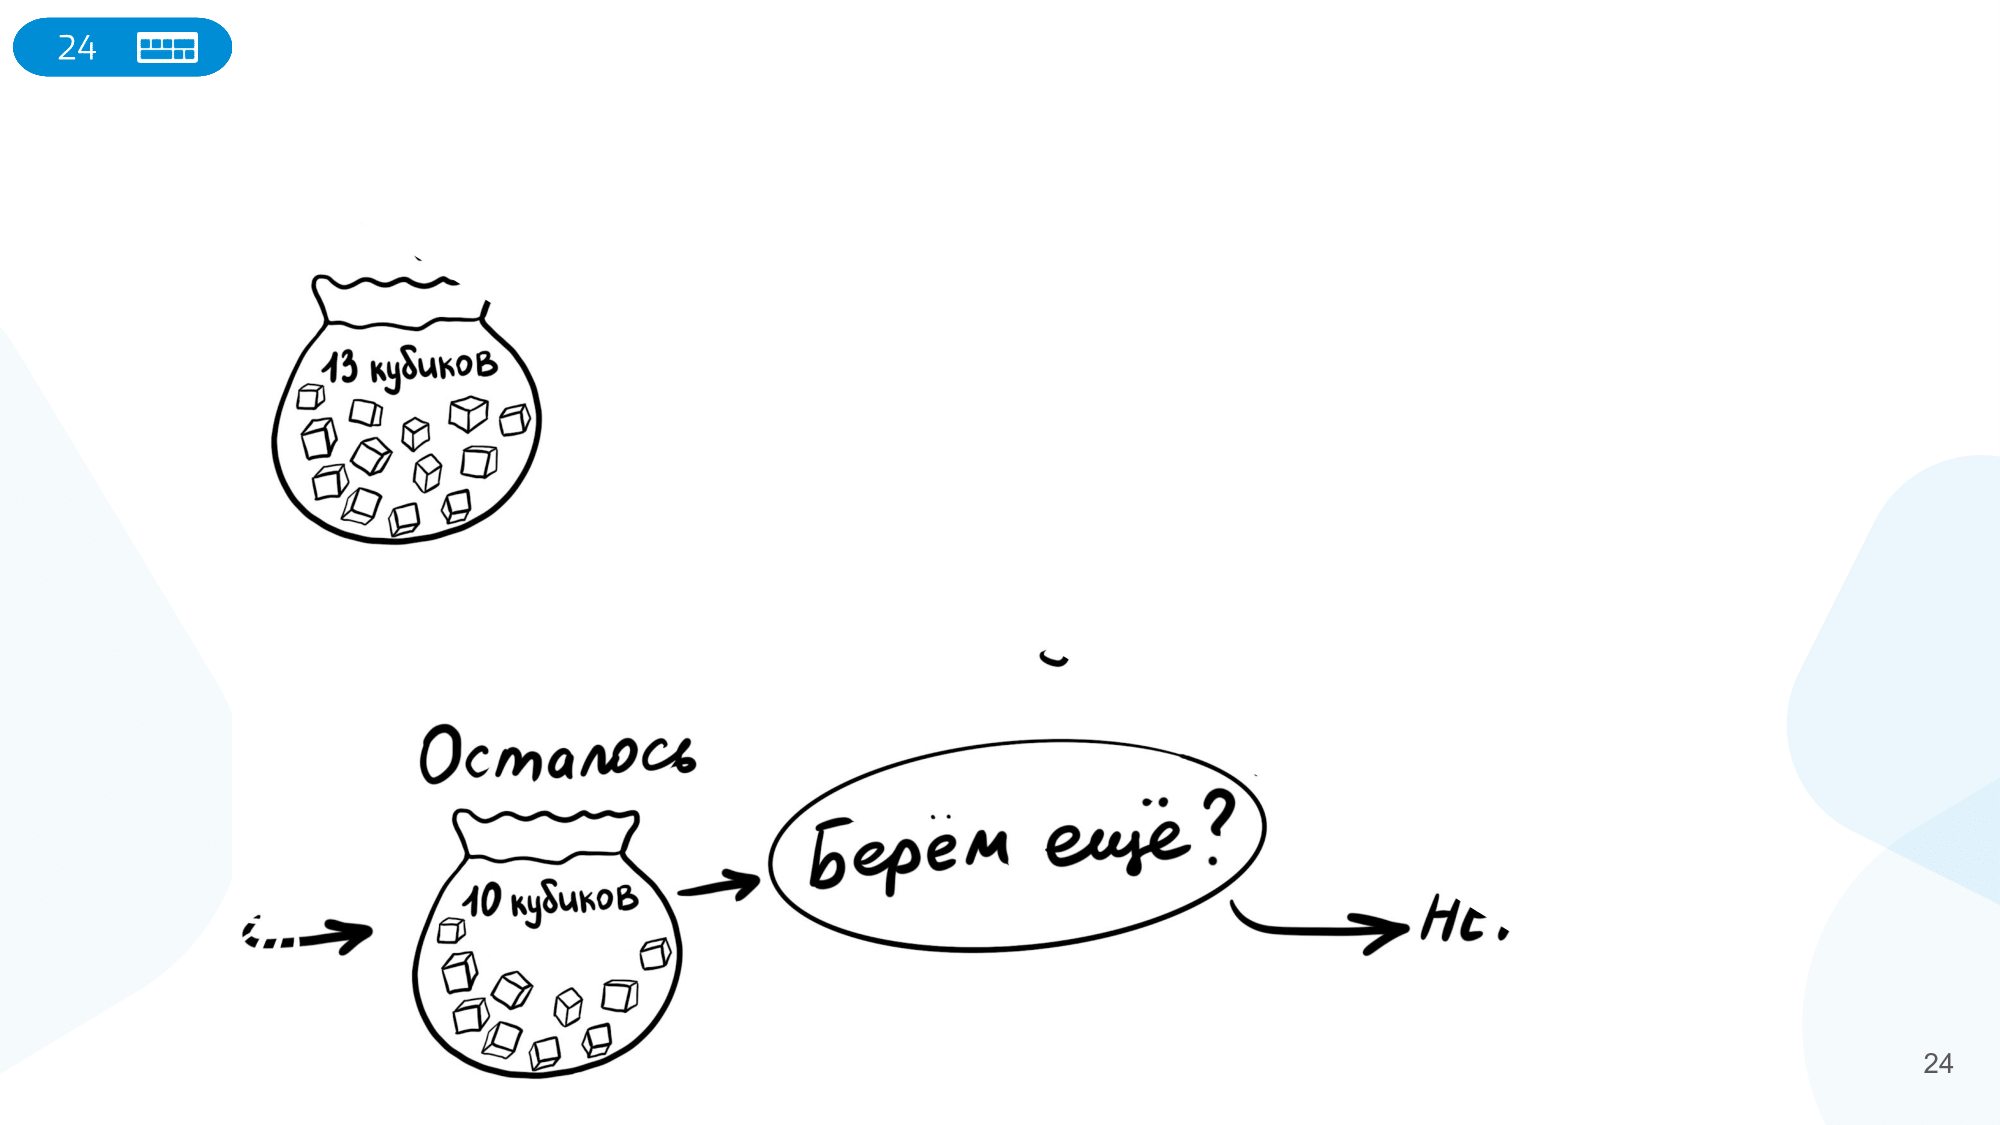 24
13 кубиков
Осталось
10 кубиков
Берём ещё?
24